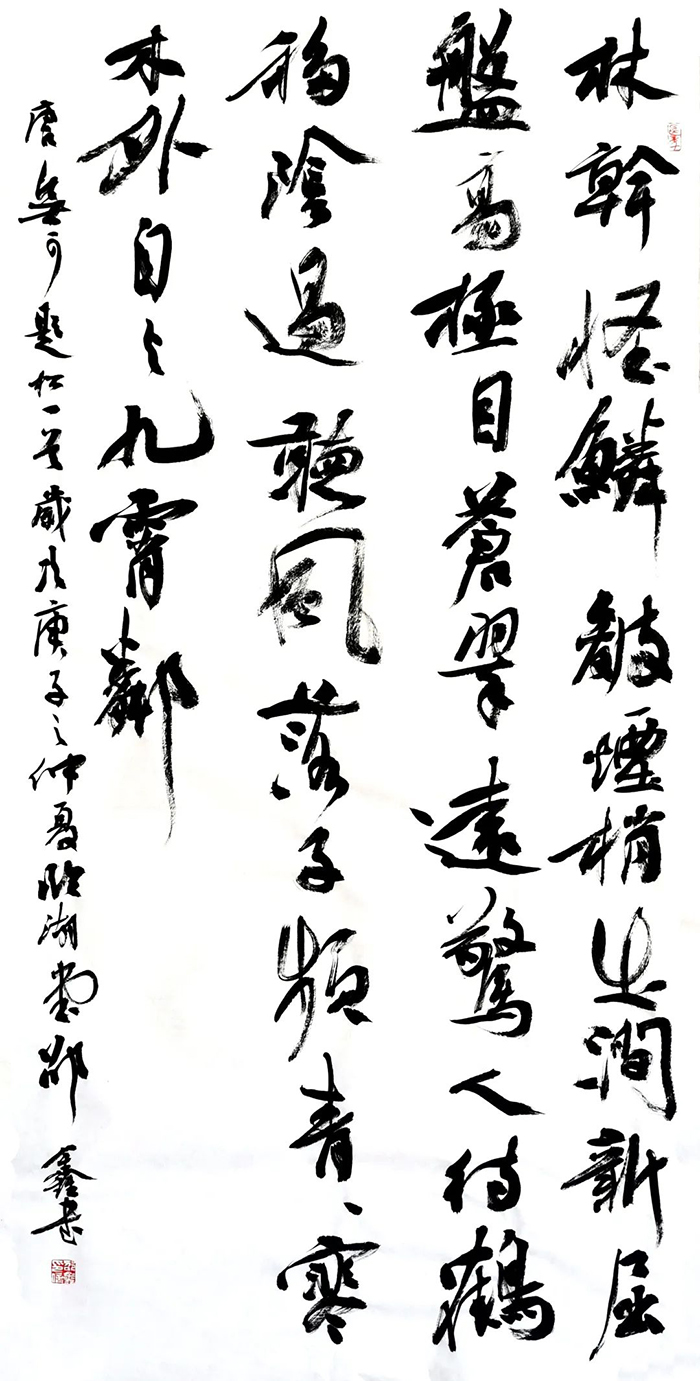 林幹怪鱗皴煙梢出澗新屈
盤高極目蒼翠遠驚人待鶴
移陰過聽風落子頻青、寒
木外自与九霄鄰
唐無可題松一首歲次庚子之仲夏臨湖堂鑫書